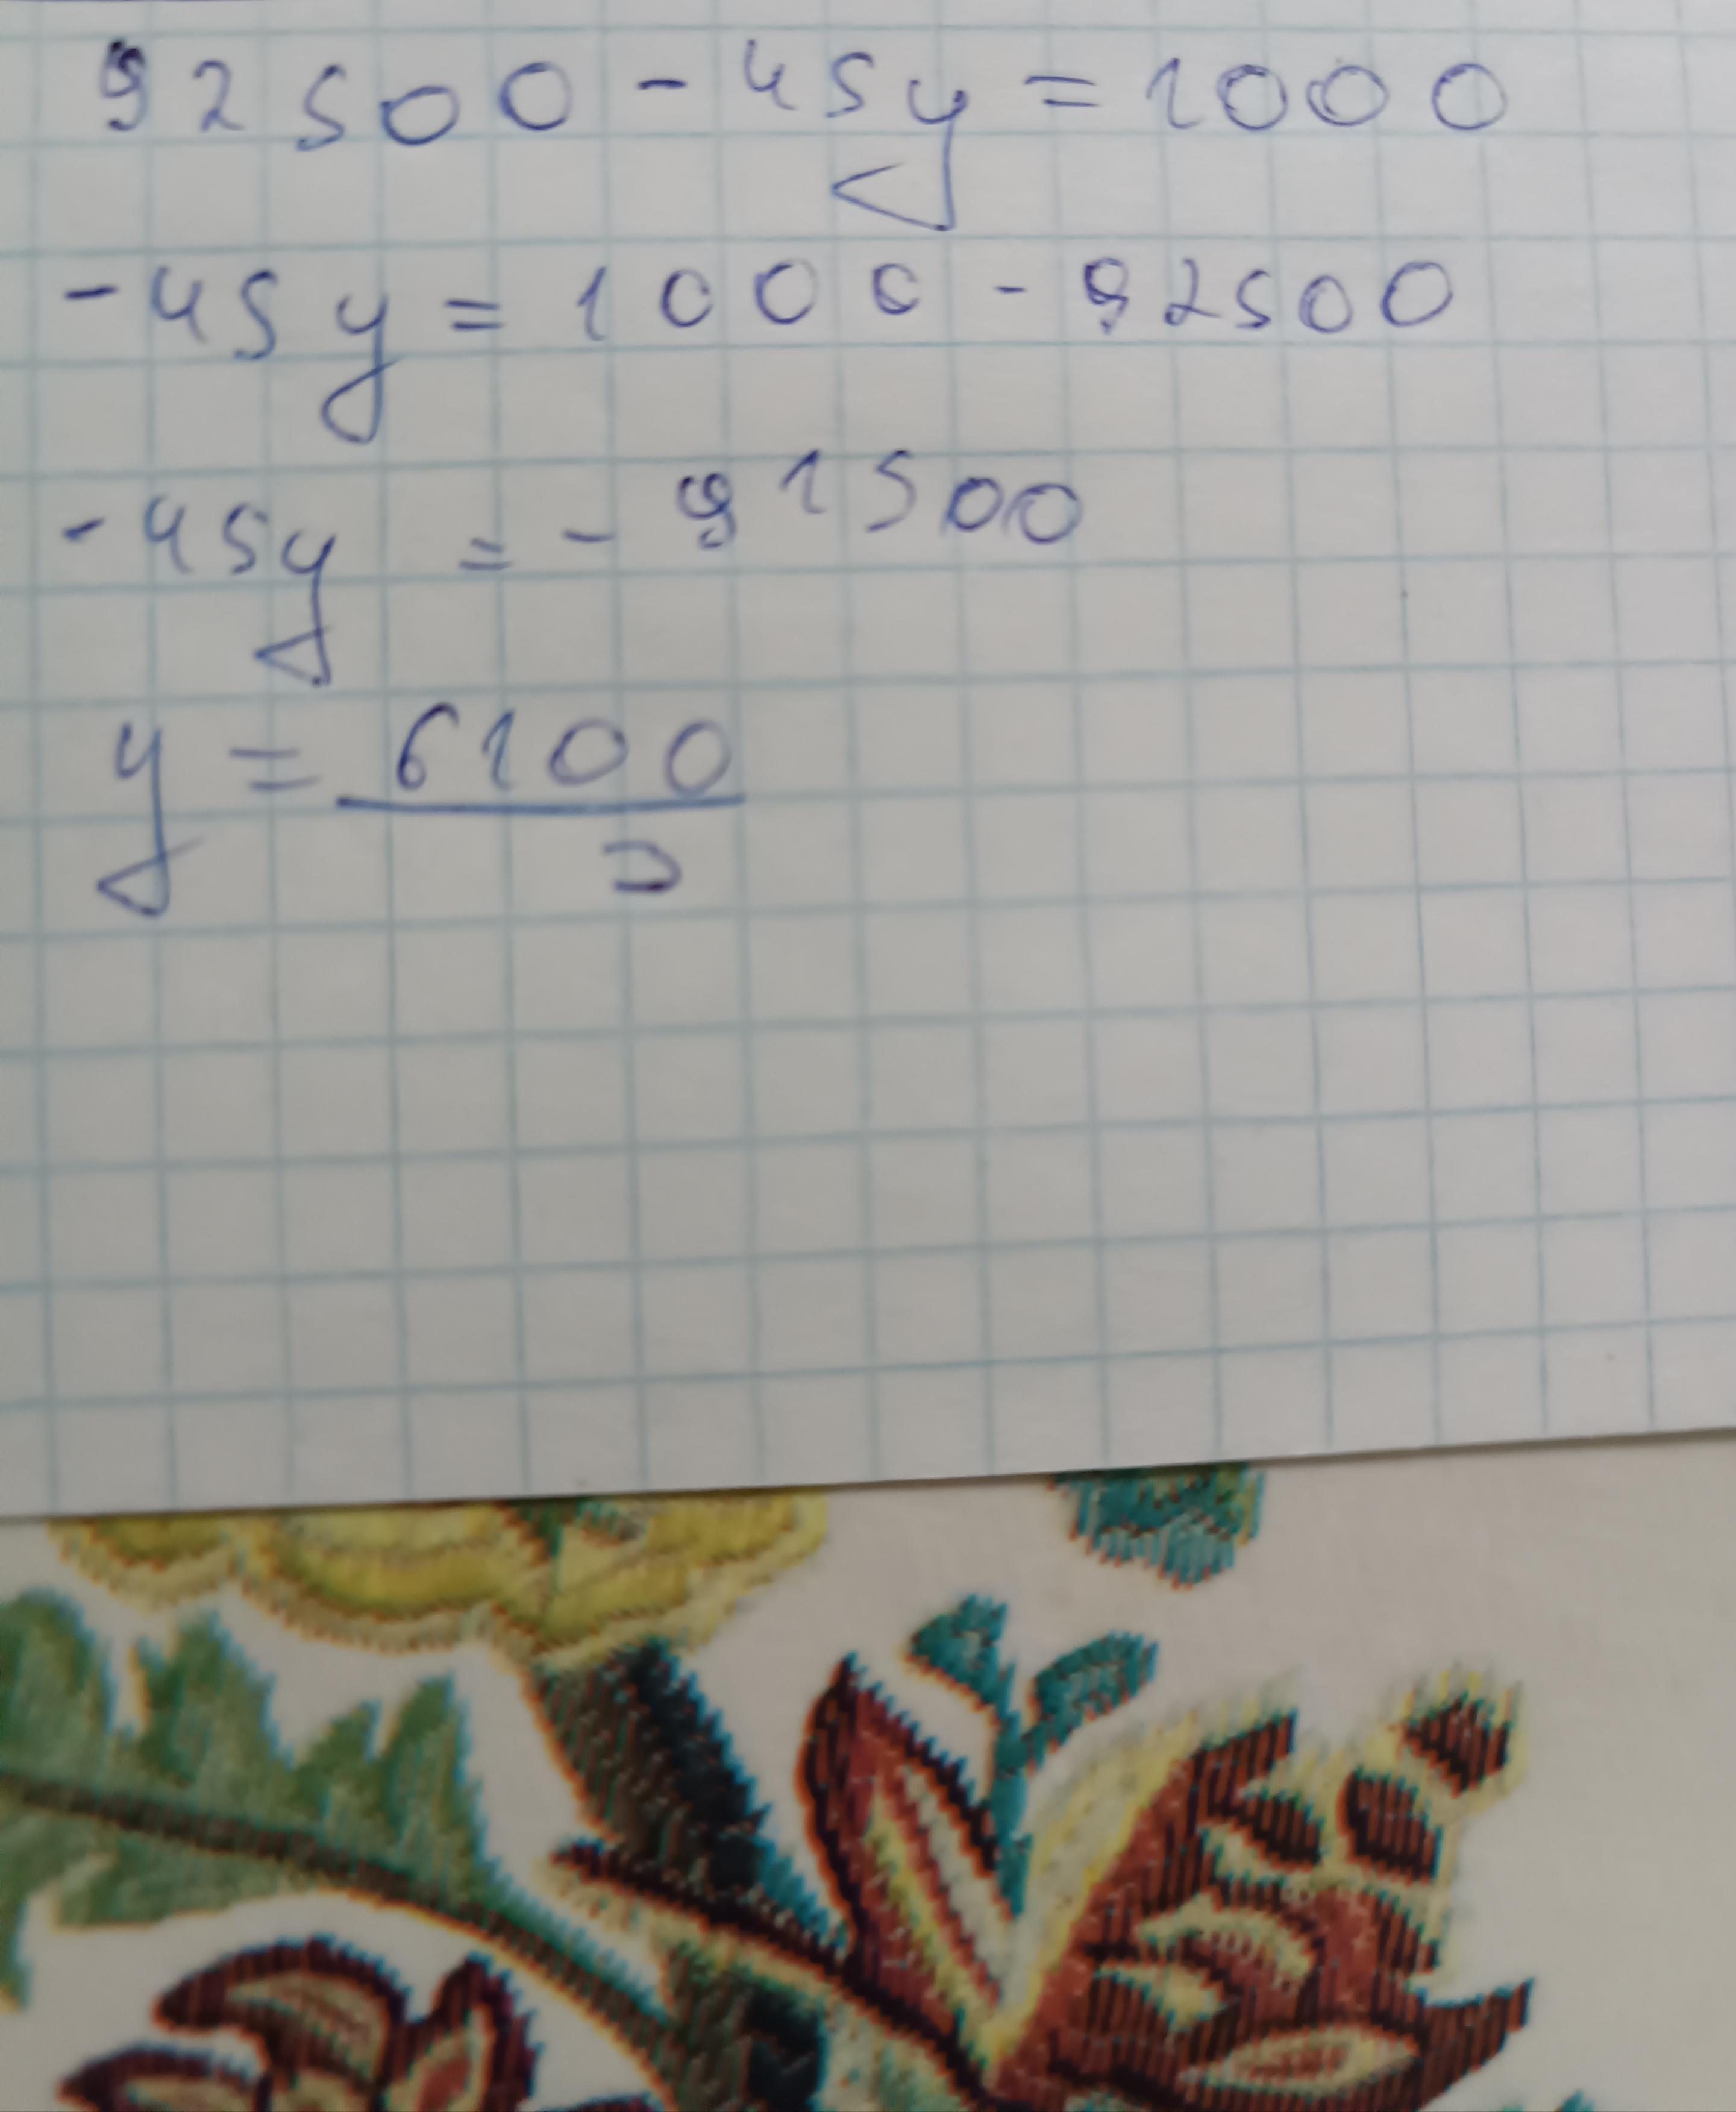 92500 - 45y = 1000
-45y = 1000 - 92500
-45y = - 91500
y = 6100